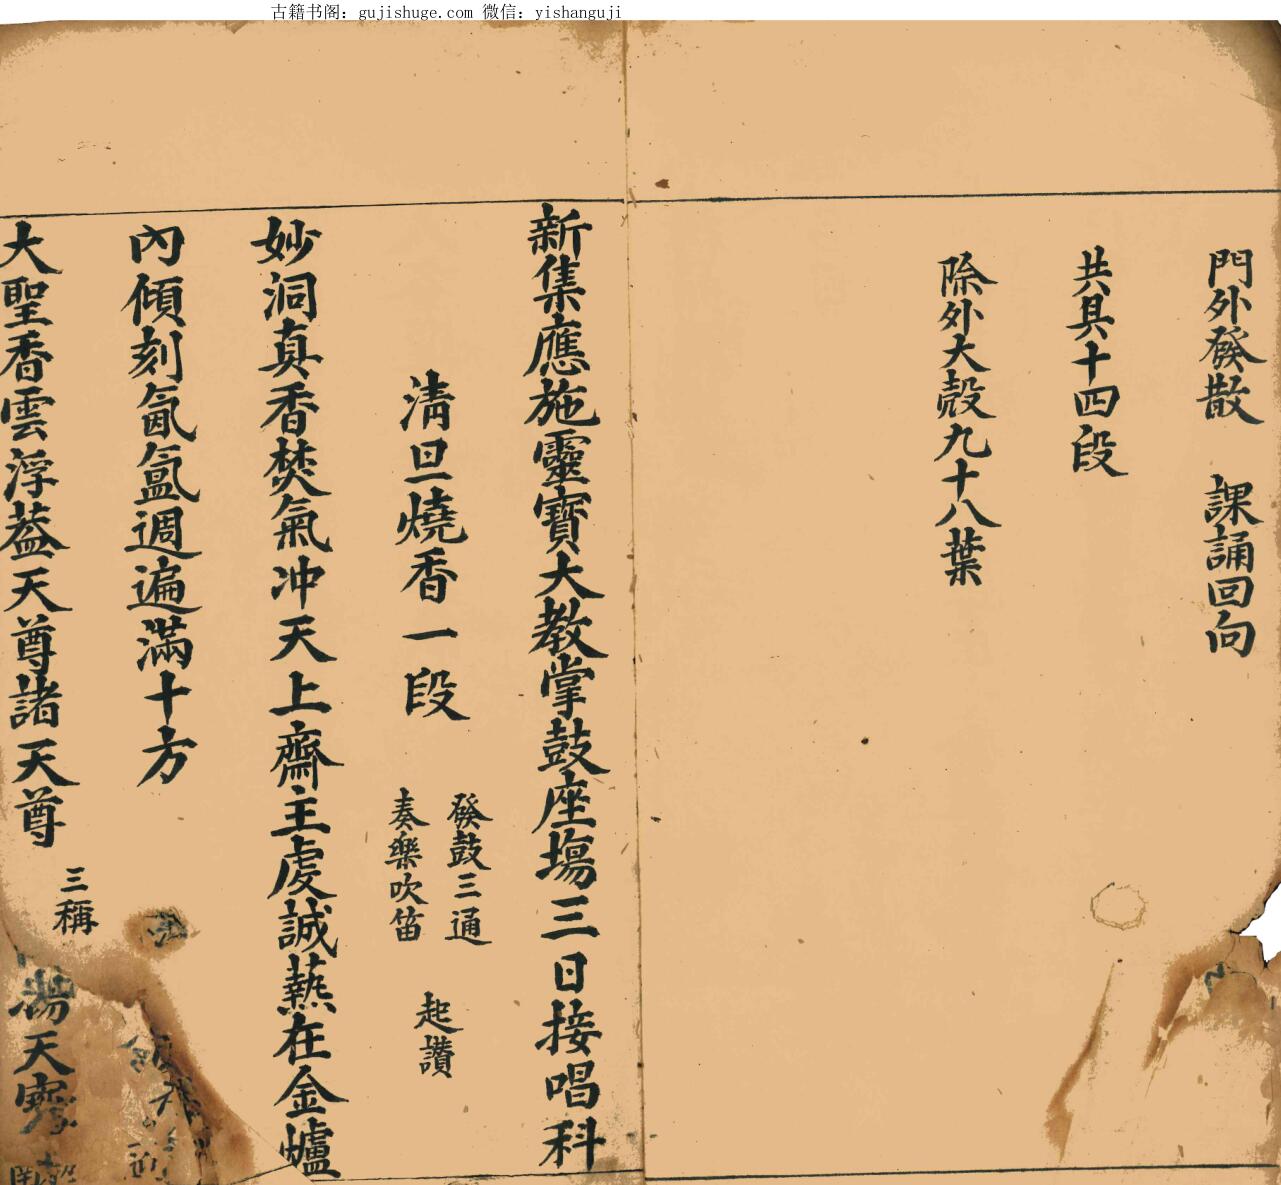 古籍书阁：gujishuge.com 微信：yishanguji
門外發散 課誦回向
共具十四段
除外大殼九十八葉
新集應施靈寶大教掌鼓座塲三日接唱科
淸旦燒香一段 發鼓三通
奏樂吹笛 起讚
妙洞真香焚氣冲天上齋主虔誠爇在金爐
內傾刻氤氳週遍滿十方
大聖香雲浮葢天尊諸天尊 三稱
天寳